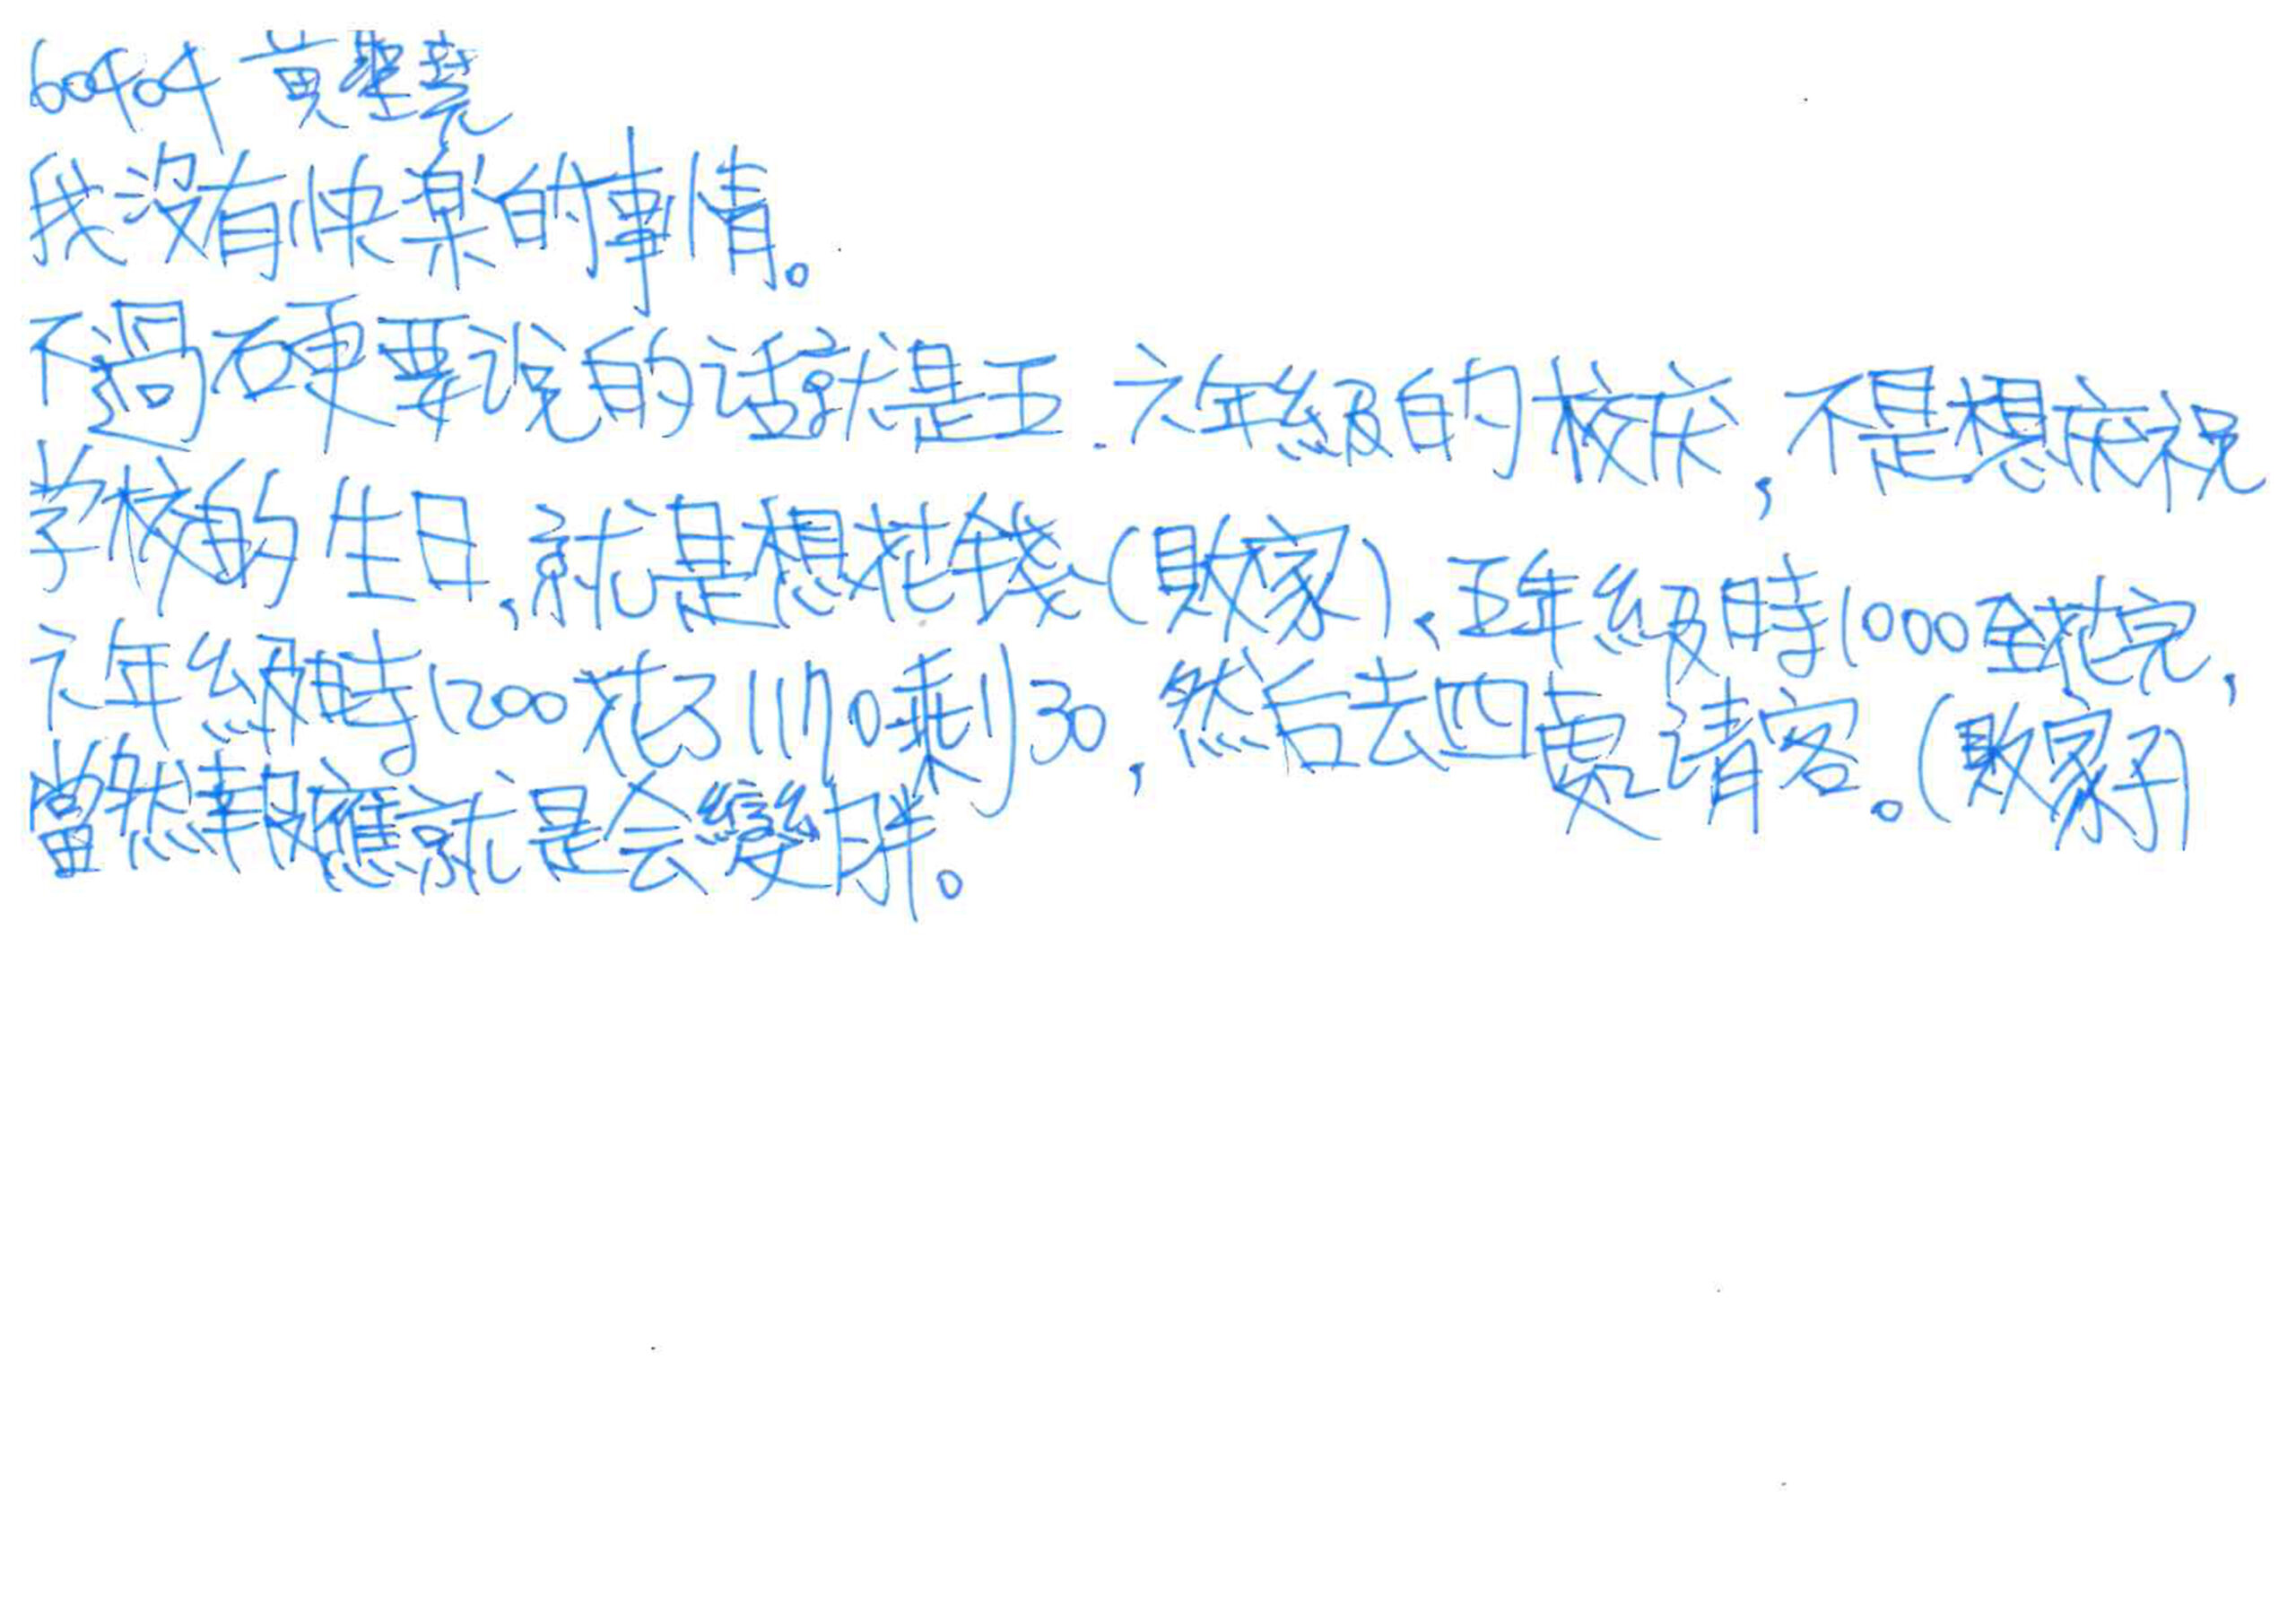 60404 黃聖堯
我沒有快樂的事情。
不過硬要说的话就是五.六年級的校庆,不是想庆祝
学校的生日,就是想花錢(敗家),五年級時1000全花完,
六年級時1200花了1170剩30,然后去四處请客。(敗家子)
當然報應就是会變胖。